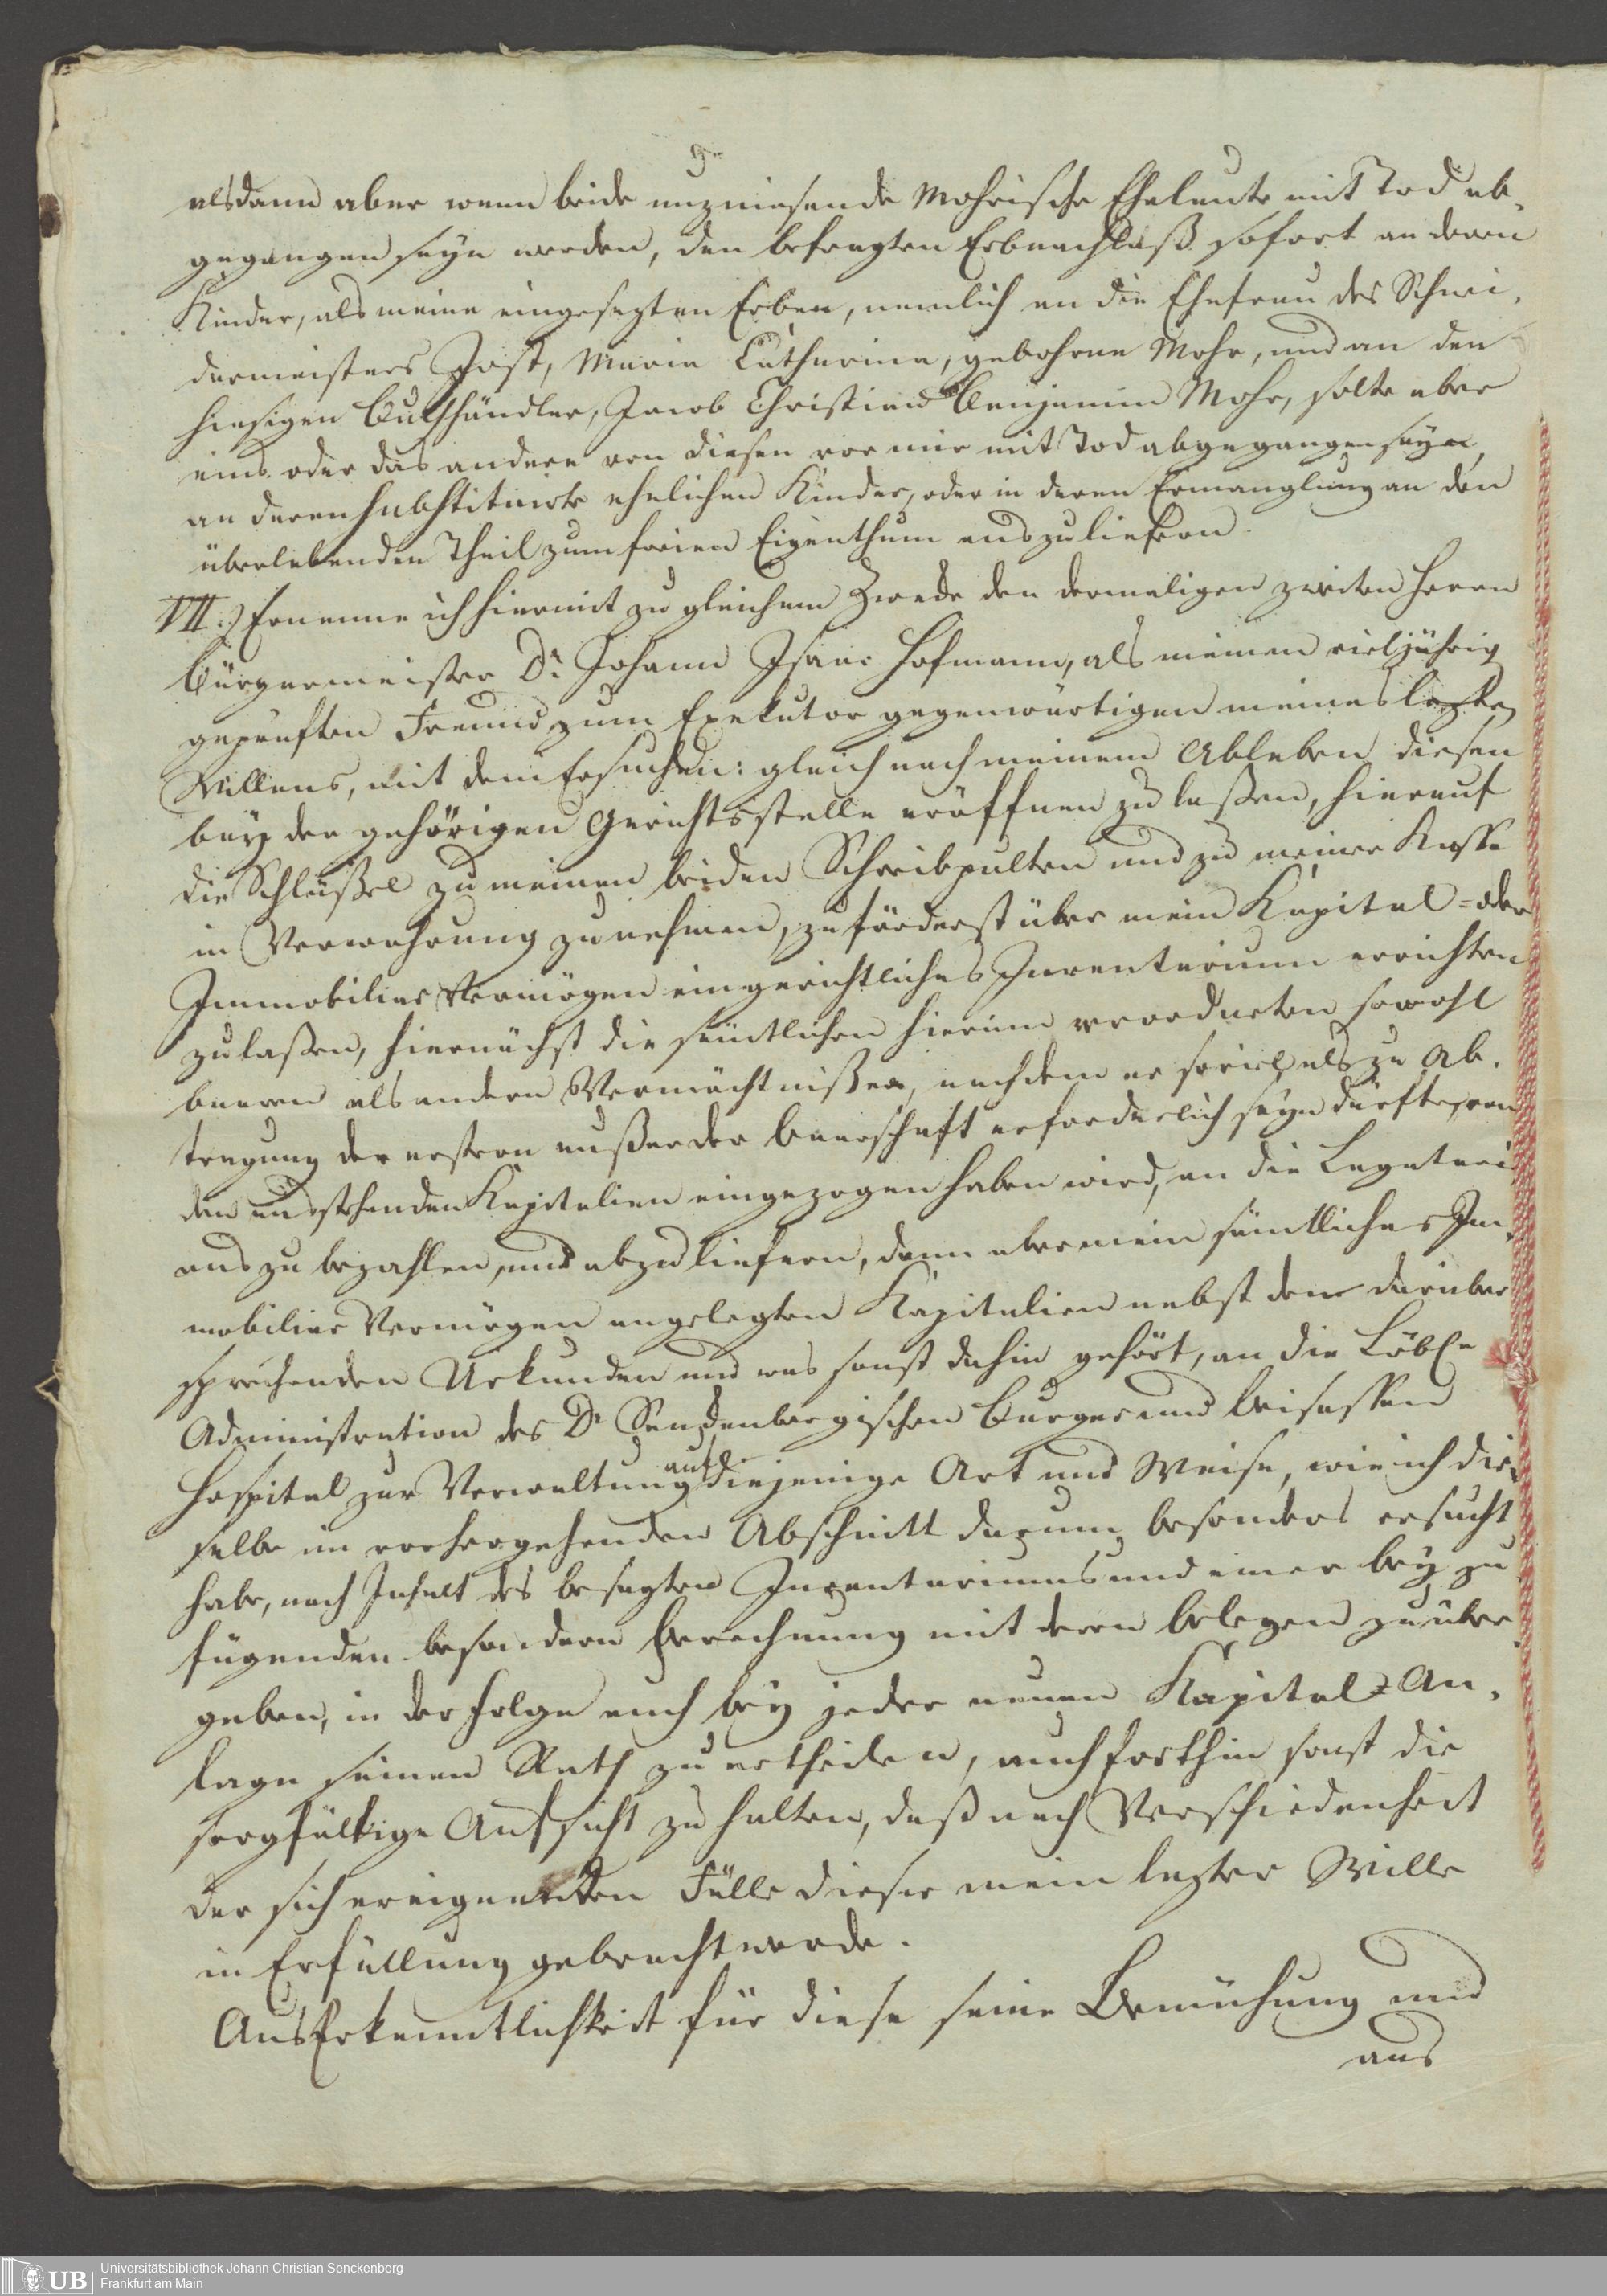 alsdann aber wenn beide nuzniesende Mohrische Eheleute mit Tod ab-
gegangen seyn werden, den besagten Erbnachlaß sofort an deren
Kinder, als meine eingesezten Erben, nemlich an die Ehefrau des Schnei-
dermeisters Jost, Maria Catharina, gebohrne Mohr, und an den
hiesigen Buchhändler, Jacob Christian Benjamin Mohr, solte aber
eins oder das andere von diesen vor mir mit Tod abgegangen seyn,
an deren substituirte ehelichen Kinder, oder in deren Ermanglung an den
überlebenden Theil zum freien Eigenthum auszuliefern.
VII.) Ernenne ich hiermit zu gleichem Zwecke den dermaligen zweiten Herrn
Bürgermeister Dr. Johann Isaac Hofmann, als meinen vieljährig
geprüften Freund zum Exekutor gegenwärtigen meines lezten
Willens, mit dem Ersuchen: gleich nach meinem Ableben diesen
bey der gehörigen Gerichtsstelle eröffnen zu laßen, hierauf
die Schlüßel zu meinen beiden Schreibpulten und zu meiner Kasse
in Verwahrung zu nehmen, zuförderst über mein Kapital- oder
Immobiliar Vermögen ein gerichtliches Inventarium errichten
zu laßen, hiernächst die sämtlichen hierinn verordneten sowohl
baaren als andern Vermächtnißen, nachdem er soviel als zu Ab-
tragung der erstern außer der Baarschaft erforderlich seyn dürfte, von
den ausstehenden Kapitalien eingezogen haben wird, an die Legatarien
aus zu bezahlen, und abzuliefern, dann aber mein sämtliches Im-
mobiliar Vermögen angelegten Kapitalien nebst den darüber
sprechenden Urkunden und was sonst dahin gehört, an die Löbl.
Administration des Dr Senckenbergischen Burger und Beisassen
Hospital zur Verwaltung auf diejenige Art und Weise, wie ich die-
selbe im vorhergehenden Abschnitt darum besonders ersucht
habe, nach Inhalt des besagten Inventariums und einer bey zu
fügenden besondern Berechnung mit deren Belegen zu über-
geben, in der Folge auch bey jeder neuen Kapital-An-
lage seinen Rath zu ertheilen, auch forthin sonst die
sorgfältige Aufsicht zu halten, daß nach Verschiedenheit
der sich ereignenden Fälle dieser mein lezter Wille
in Erfüllung gebracht werde.
Aus Erkenntlichkeit für diese seine Bemühung und
aus
Universitätsbibliothek Johann Christian Senckenberg
Frankfurt am Main
UB